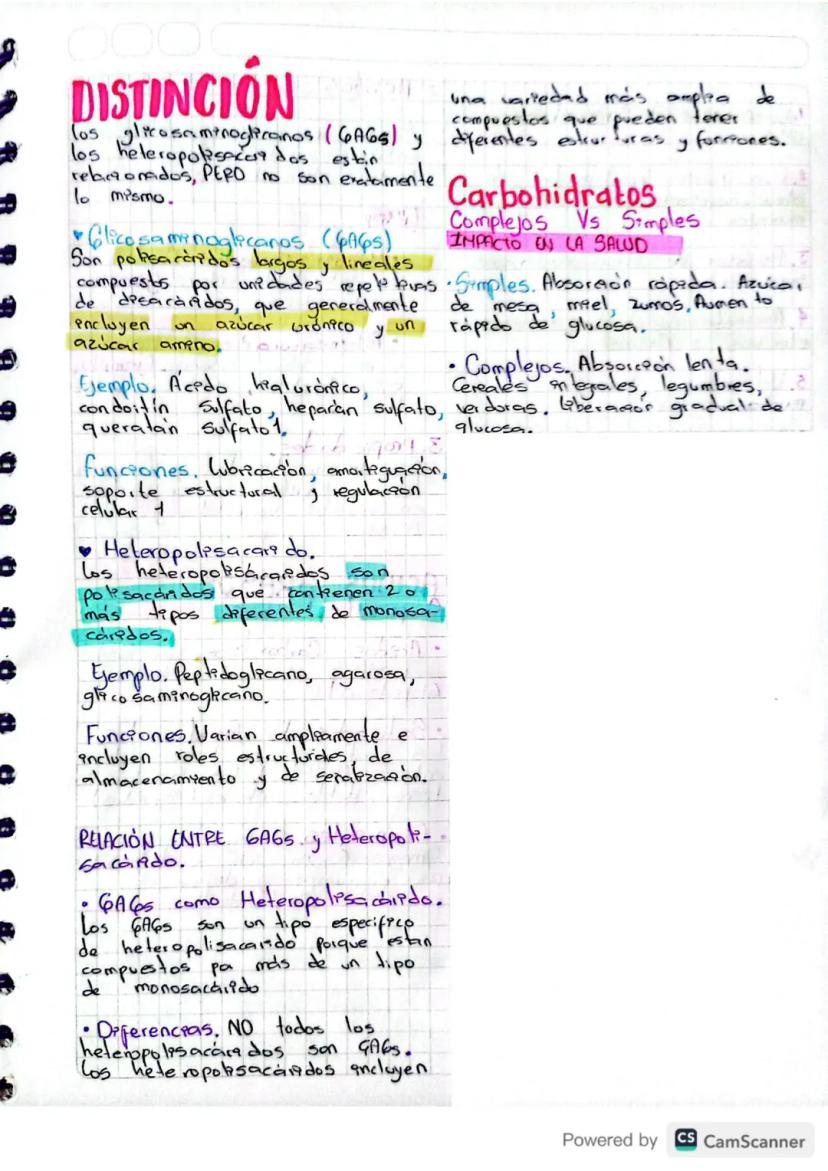 DISTINCIÓN
los glicosaminoglicanos (GAGs) y
los heteropolisacáridos están
relacionados, PERO no son exatamente
lo mismo.
♥ Glicosaminoglicanos (GAGs)
Son polisacáridos largos y lineales
compuestos por unidades repetitivas
de disacáridos, que generalmente
incluyen un azúcar urónico y un
azúcar amino.
Ejemplo. Ácido hialurónico,
condoitín sulfato, heparán sulfato,
queratán sulfato1.
Funciones. Lubricación, amortiguación,
soporte estructural y regulación
celular 1
♥ Heteropolisacarido.
Los heteropolisácaridos son
polisacáridos que contienen 2 o
más tipos diferentes de monosa-
cáridos.
Ejemplo. Peptidoglicano, agarosa,
glicosaminoglicano.
Funciones. Varian ampliamente e
incluyen roles estructurales, de
almacenamiento y de señalización.
RELACIÓN ENTRE GAGs y Heteropoli-
sacárido.
• GAGs como Heteropolisacárido.
Los GAGs son un tipo especifico
de heteropolisacarido porque estan
compuestos por más de un tipo
de monosacárido
• Diferencias. NO todos los
heteropolisacáridos son GAGs.
Los heteropolisacáridos incluyen
una variedad más amplia de
compuestos que pueden tener
diferentes estructuras y funciones.
Carbohidratos
Complejos Vs Simples
IMPACTO EN LA SALUD
• Simples. Absorción rápida. Azúcar
de mesa, miel, zumos. Aumento
rápido de glucosa.
• Complejos. Absorción lenta.
Cereales integales, legumbres,
verduras. Liberación gradual de
glucosa.
Powered by CS CamScanner